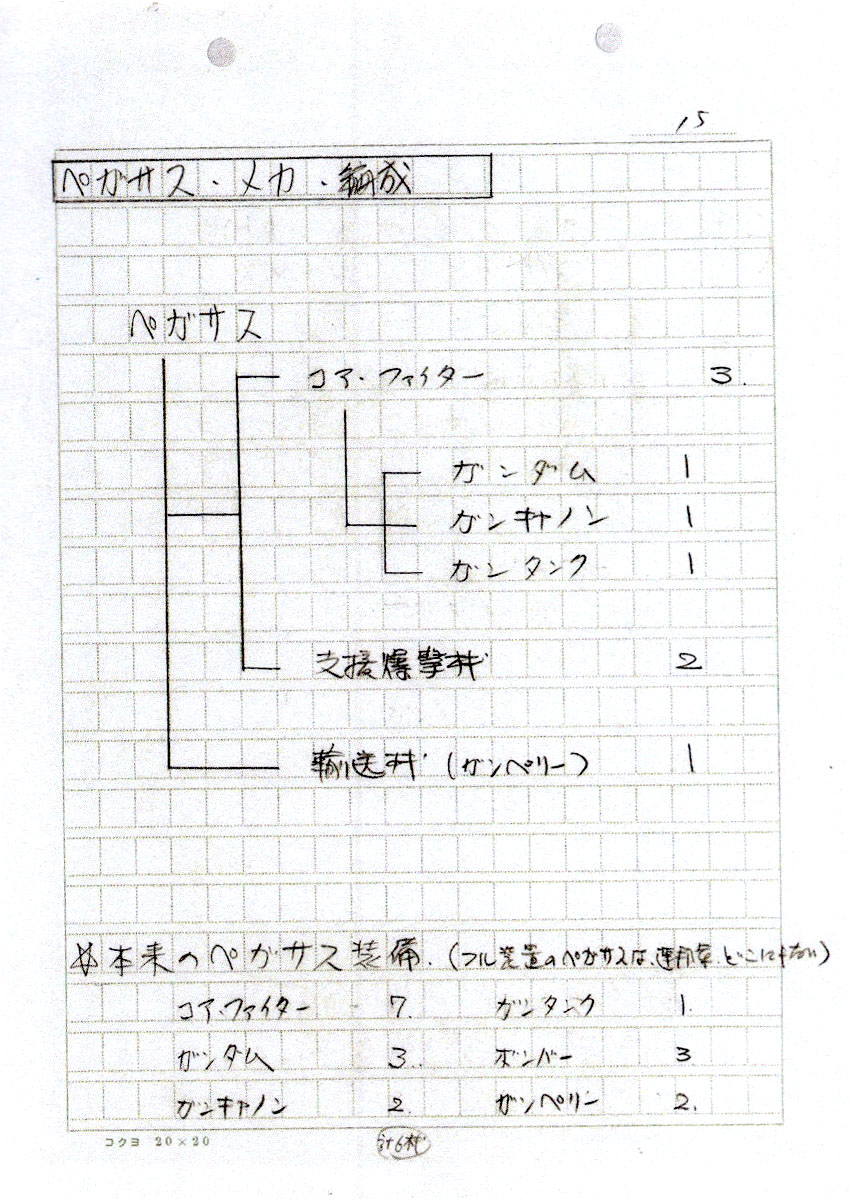 15
ペガサス・メカ・編成
ペガサス
コア・ファイター 3.
ガンダム 1
ガンキャノン 1
ガンタンク 1
支援爆撃機 2
輸送機 (ガンペリー) 1
本来のペガサス装備. (フル装置のペガサスは、どこにもない)
コア・ファイター 7. ガンタンク 1.
ガンダム 3.. ボンバー 3
ガンキャノン 2. ガンペリン 2.
コクヨ 20×20
計6機